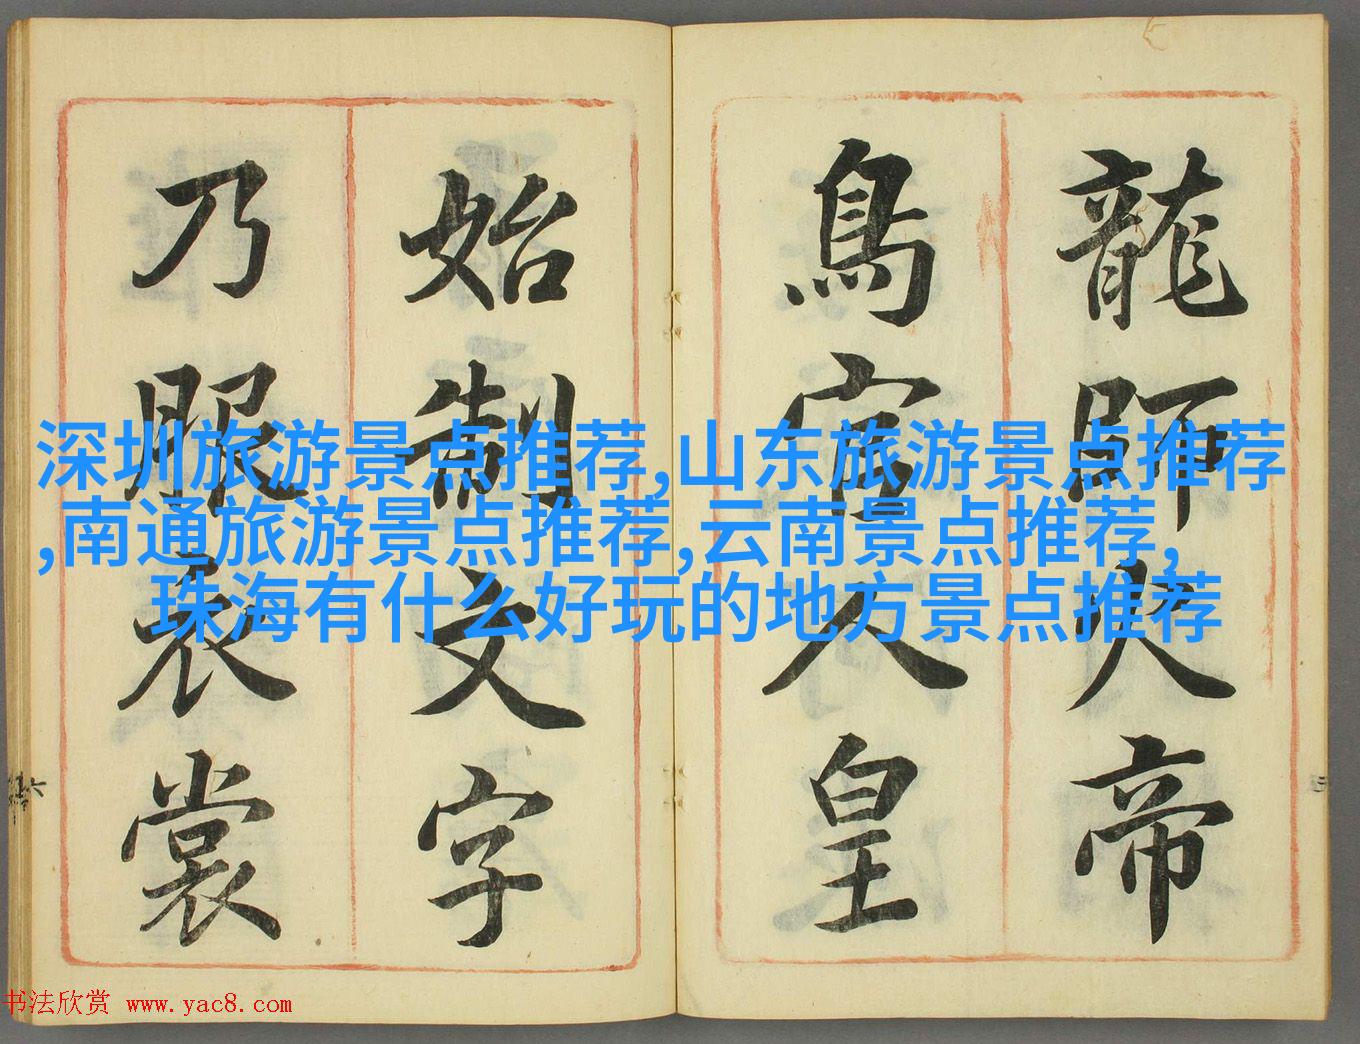 龍師火帝
鳥官人皇
始制文字
乃服衣裳
深圳旅游景点推荐,山东旅游景点推荐
,南通旅游景点推荐,云南景点推荐,
珠海有什么好玩的地方景点推荐
书法欣赏 www.yac8.com